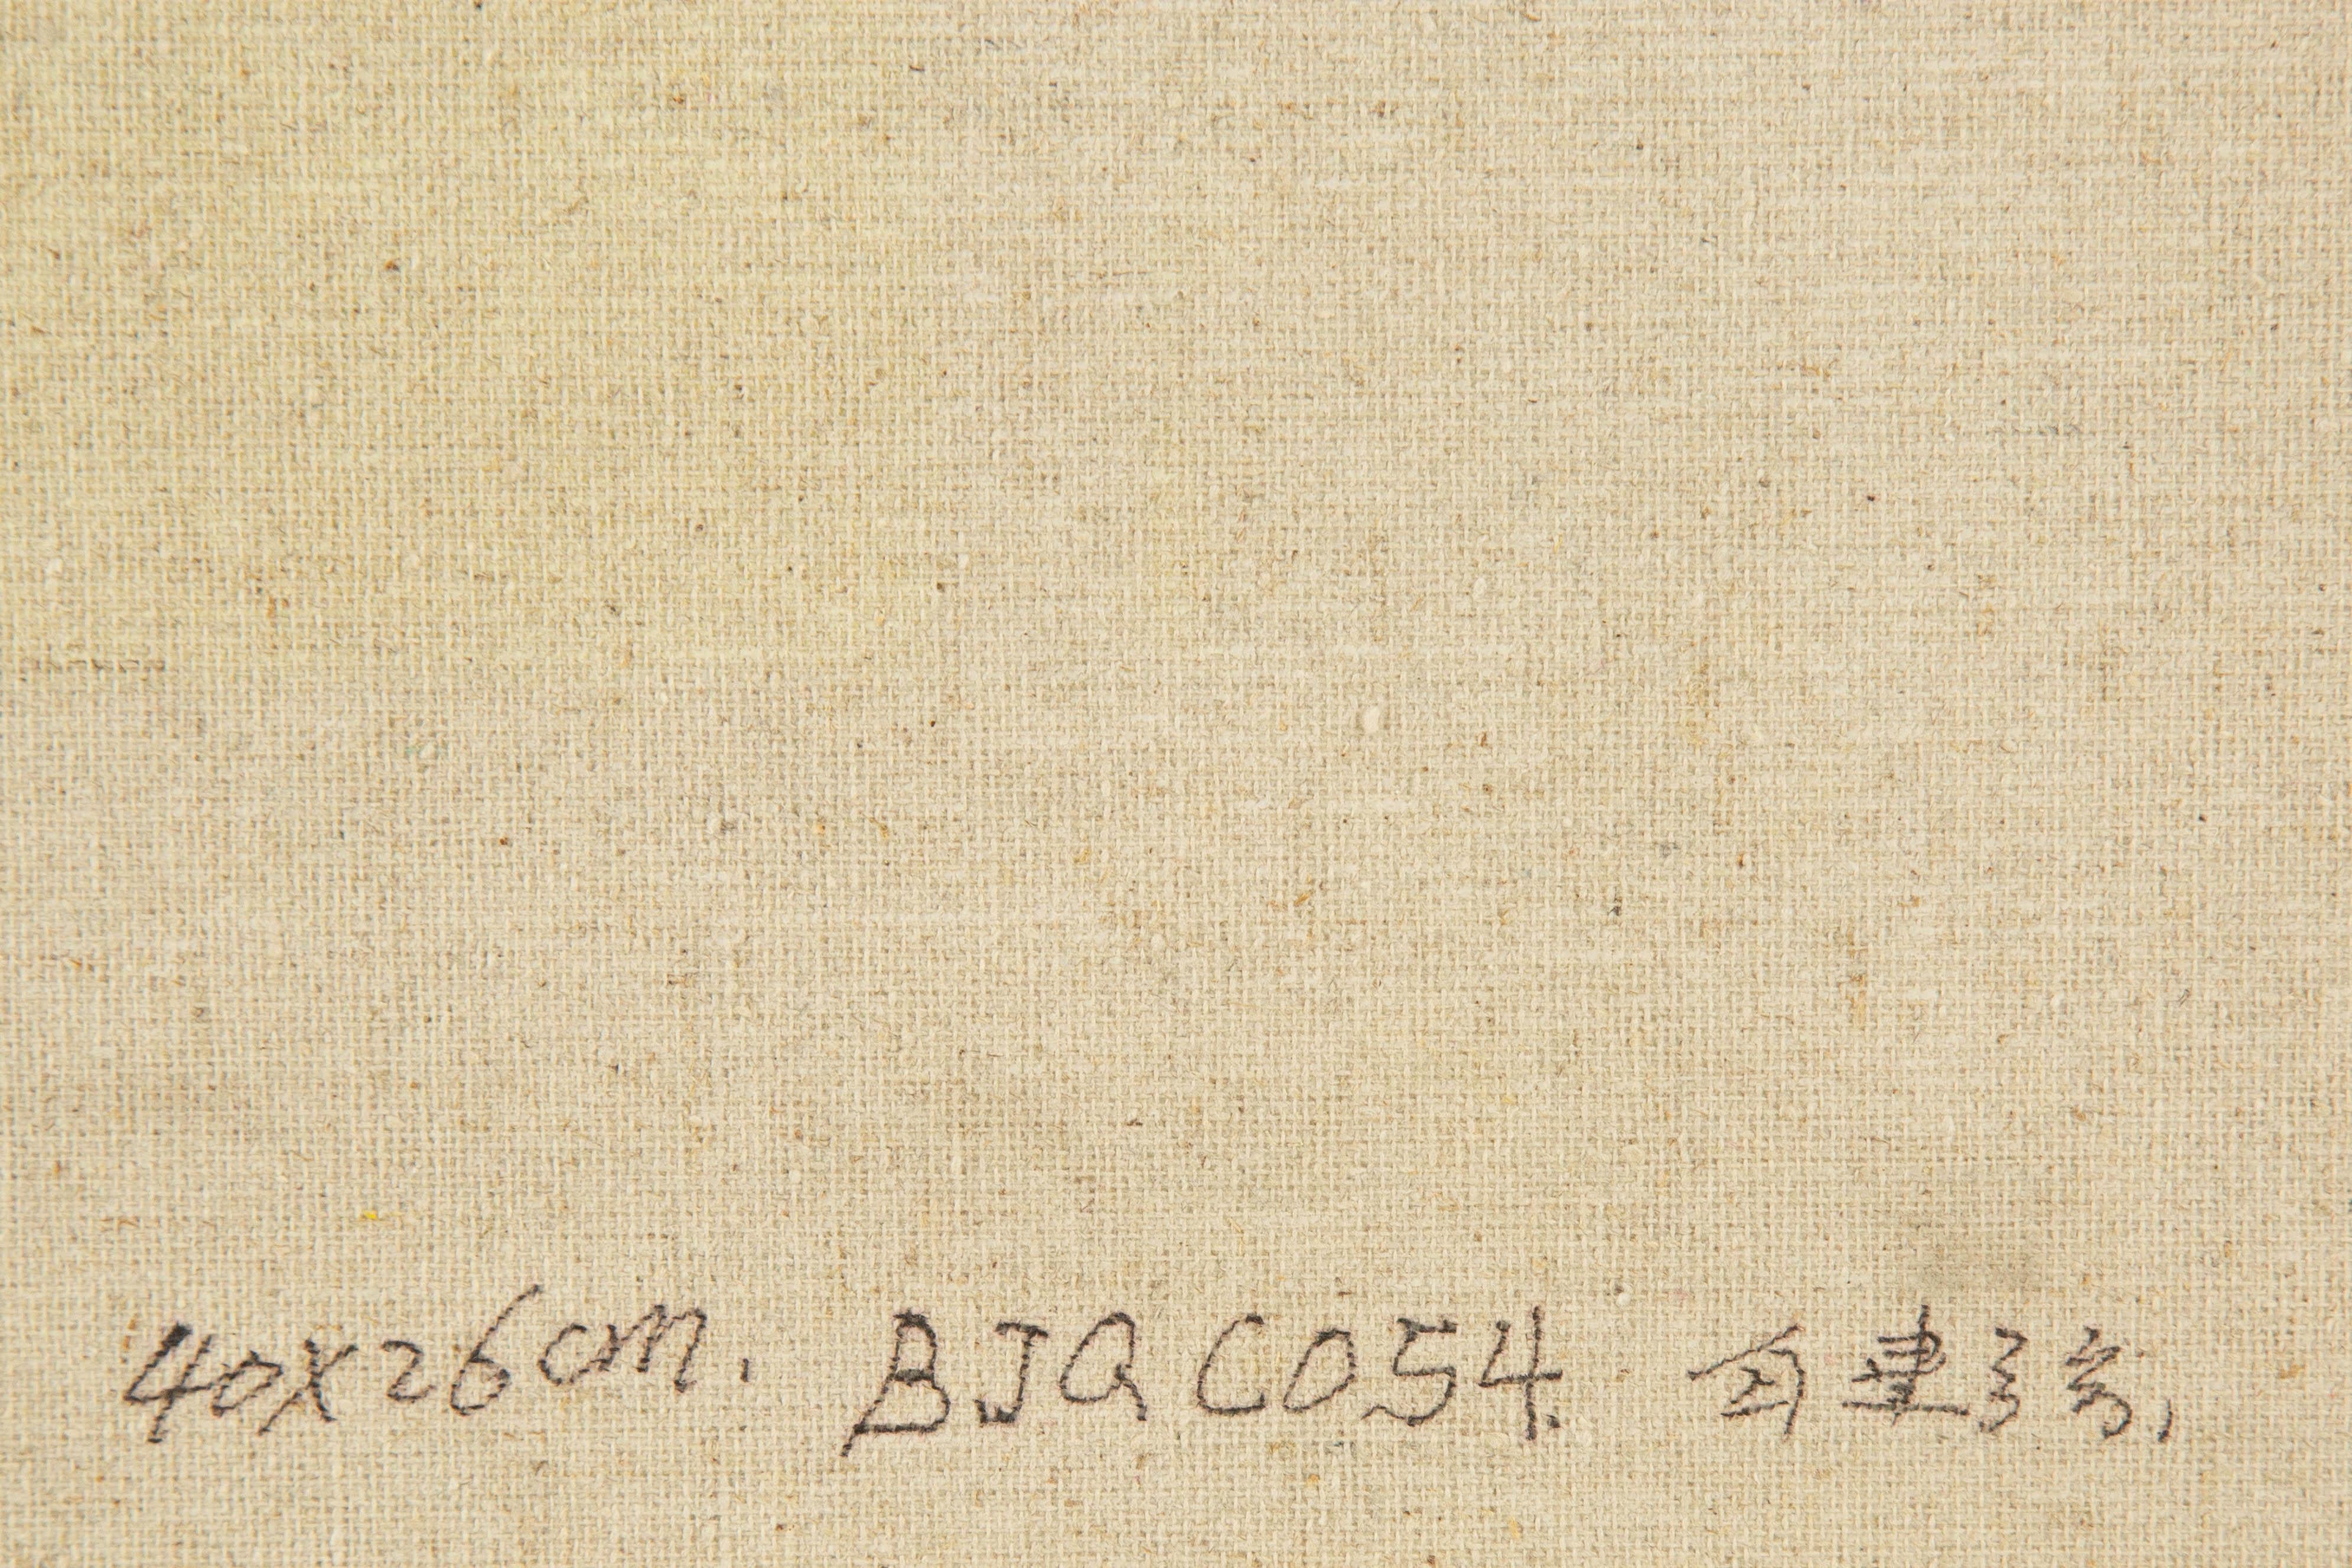 40x26cm. BJQ C054. 建强,